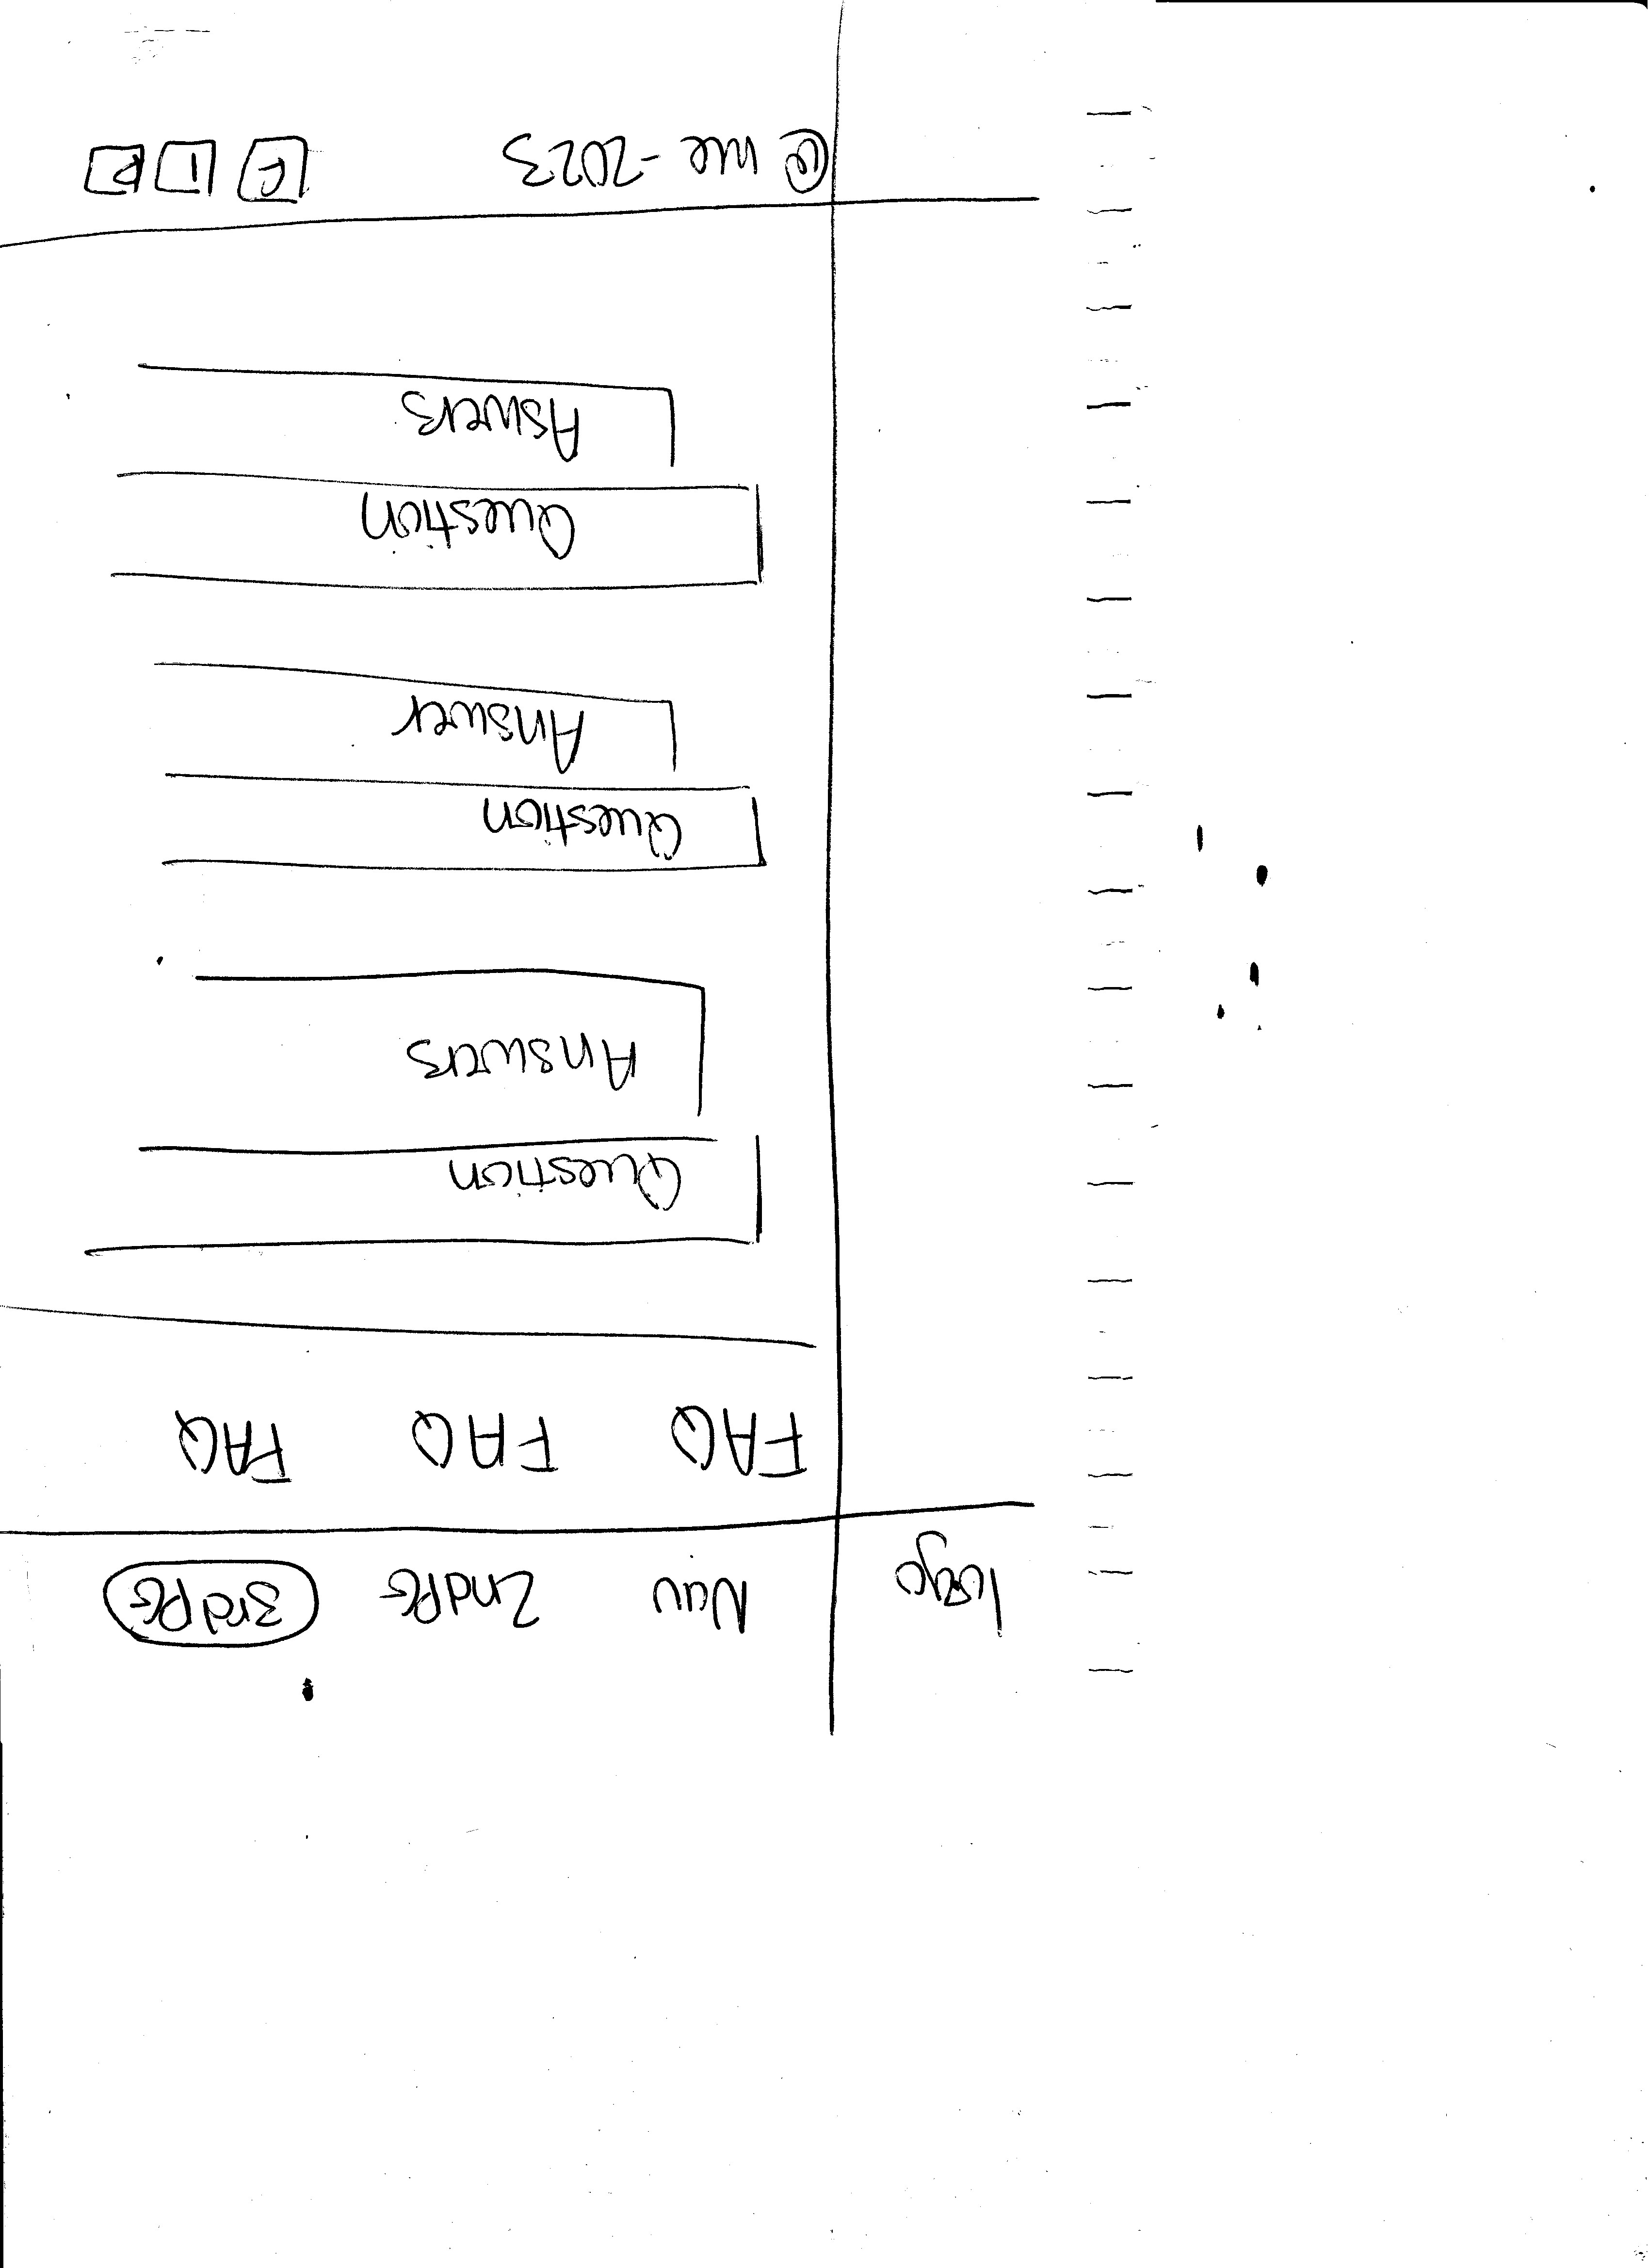 logo Nav 2ndPG 3rdPG
FAQ FAQ FAQ
Question
Answers
Question
Answer
Question
Aswers
© me - 2023 F I P